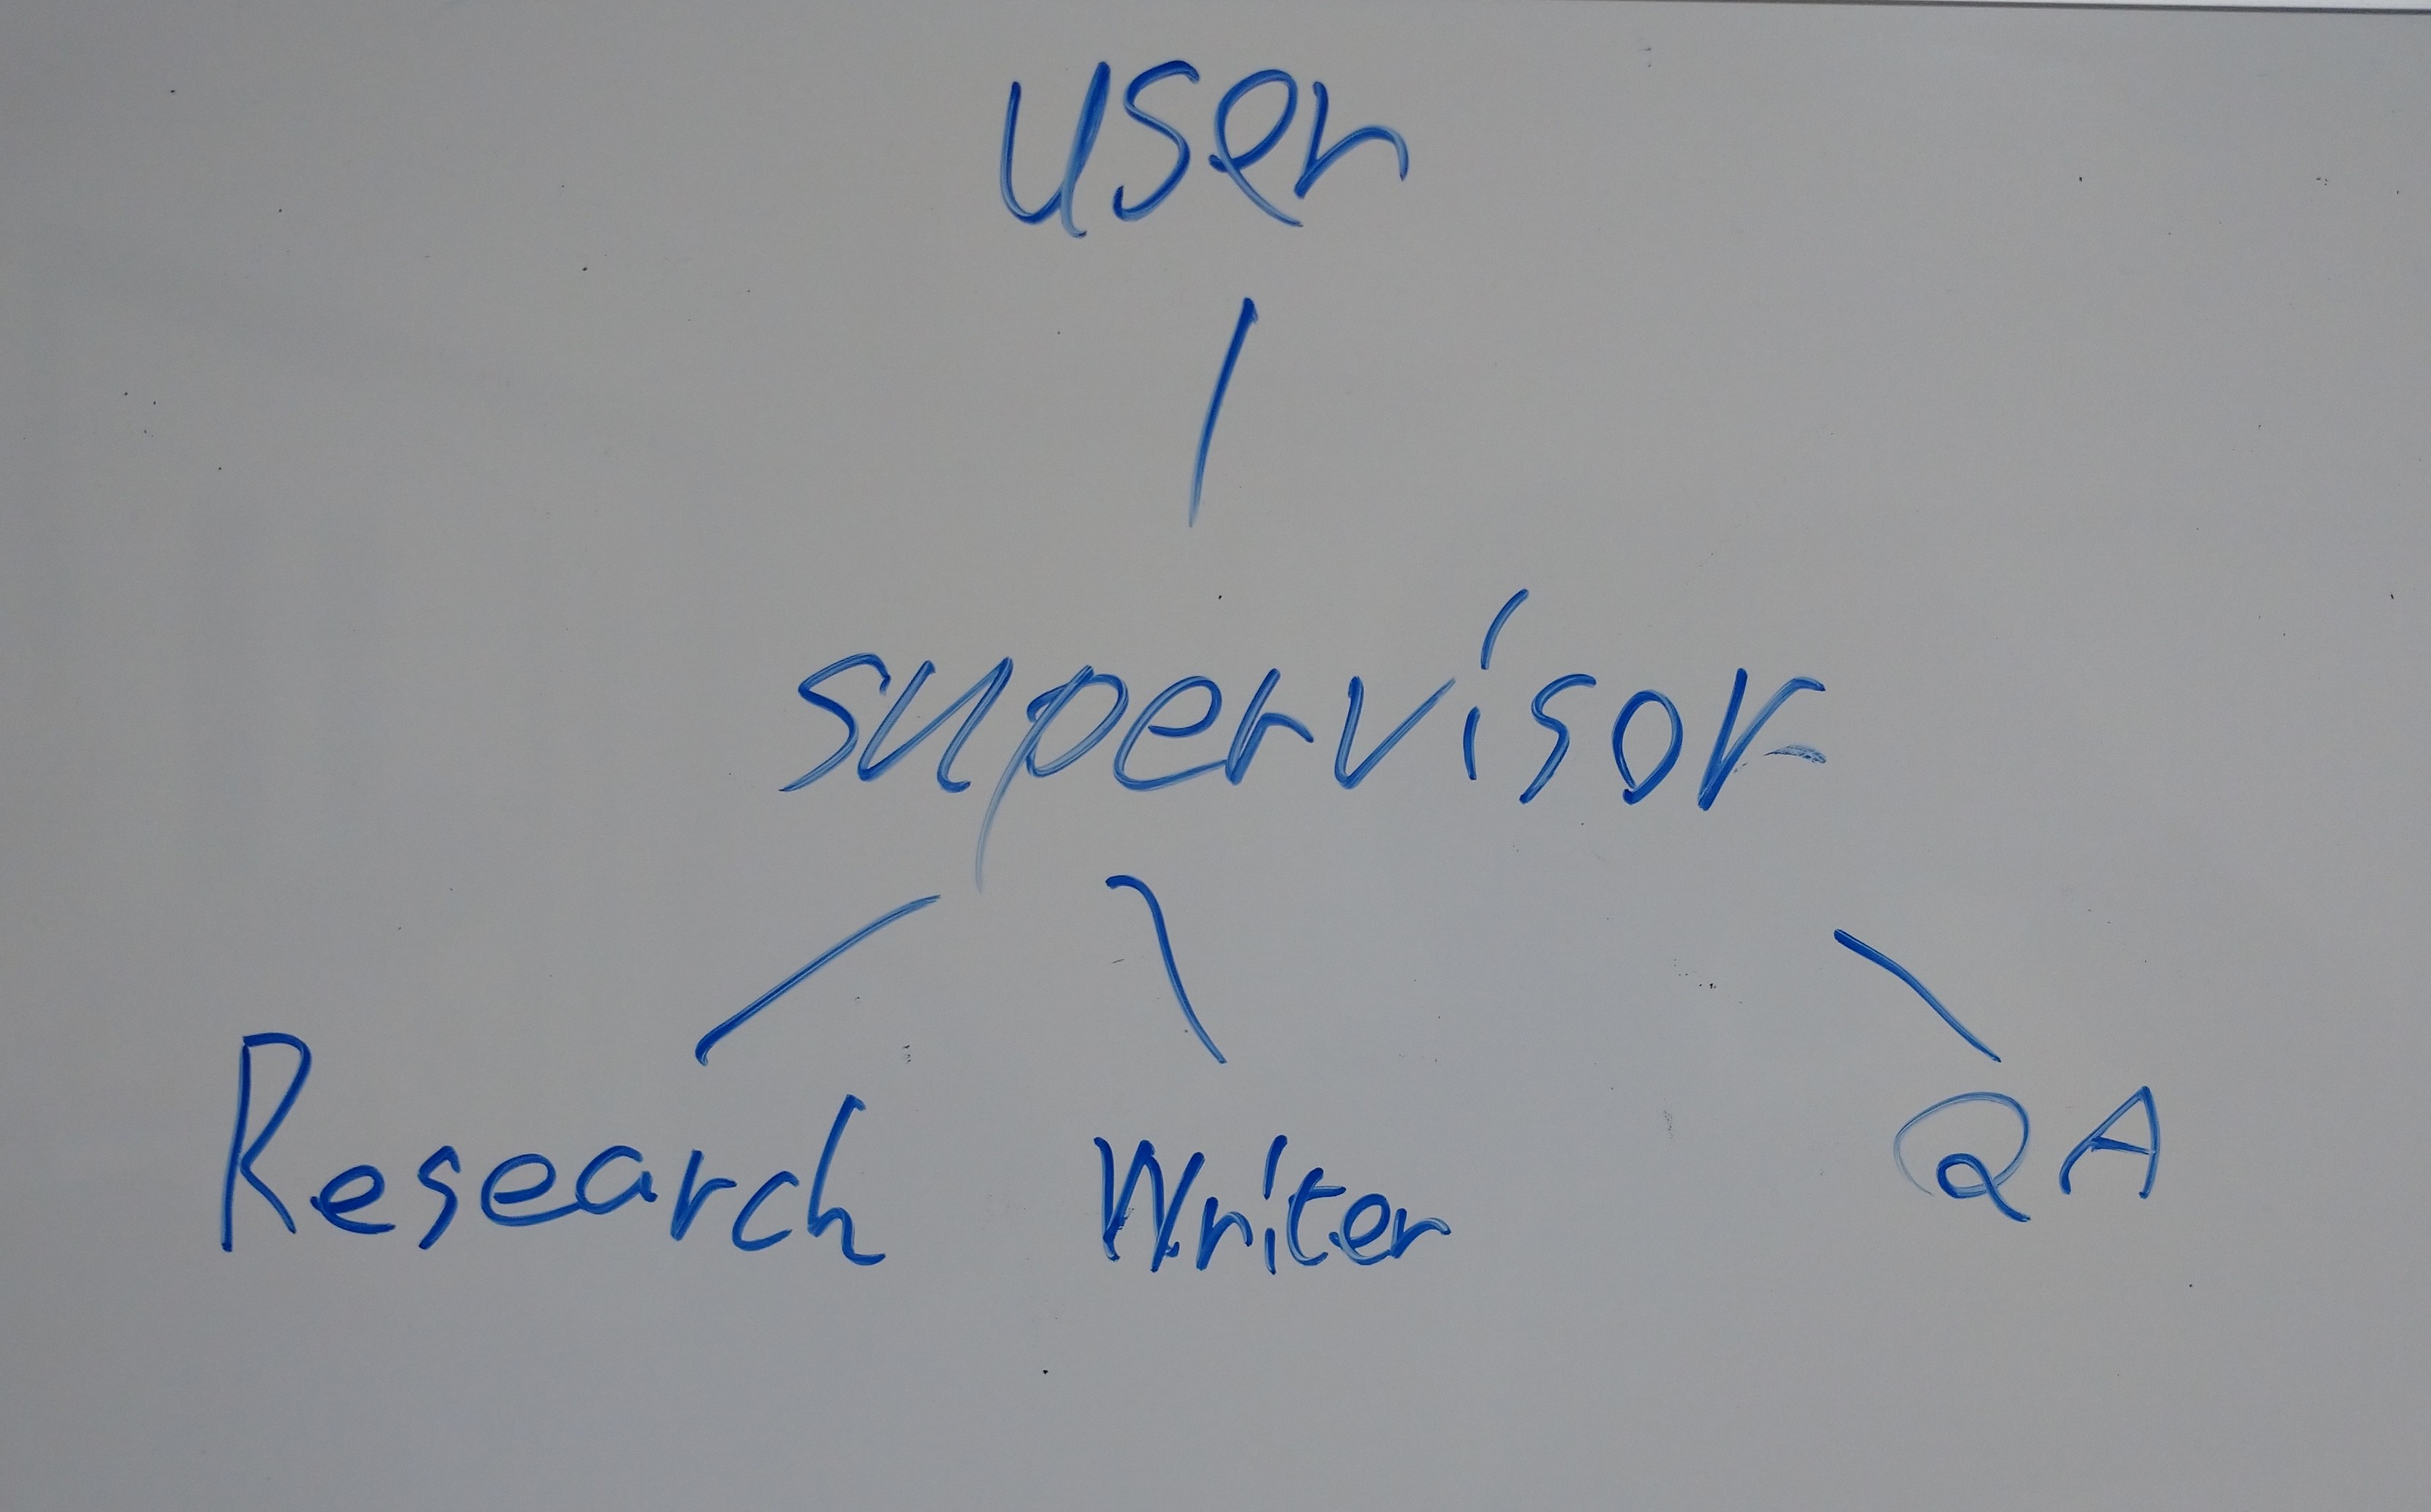 user
supervisor
Research Writer QA